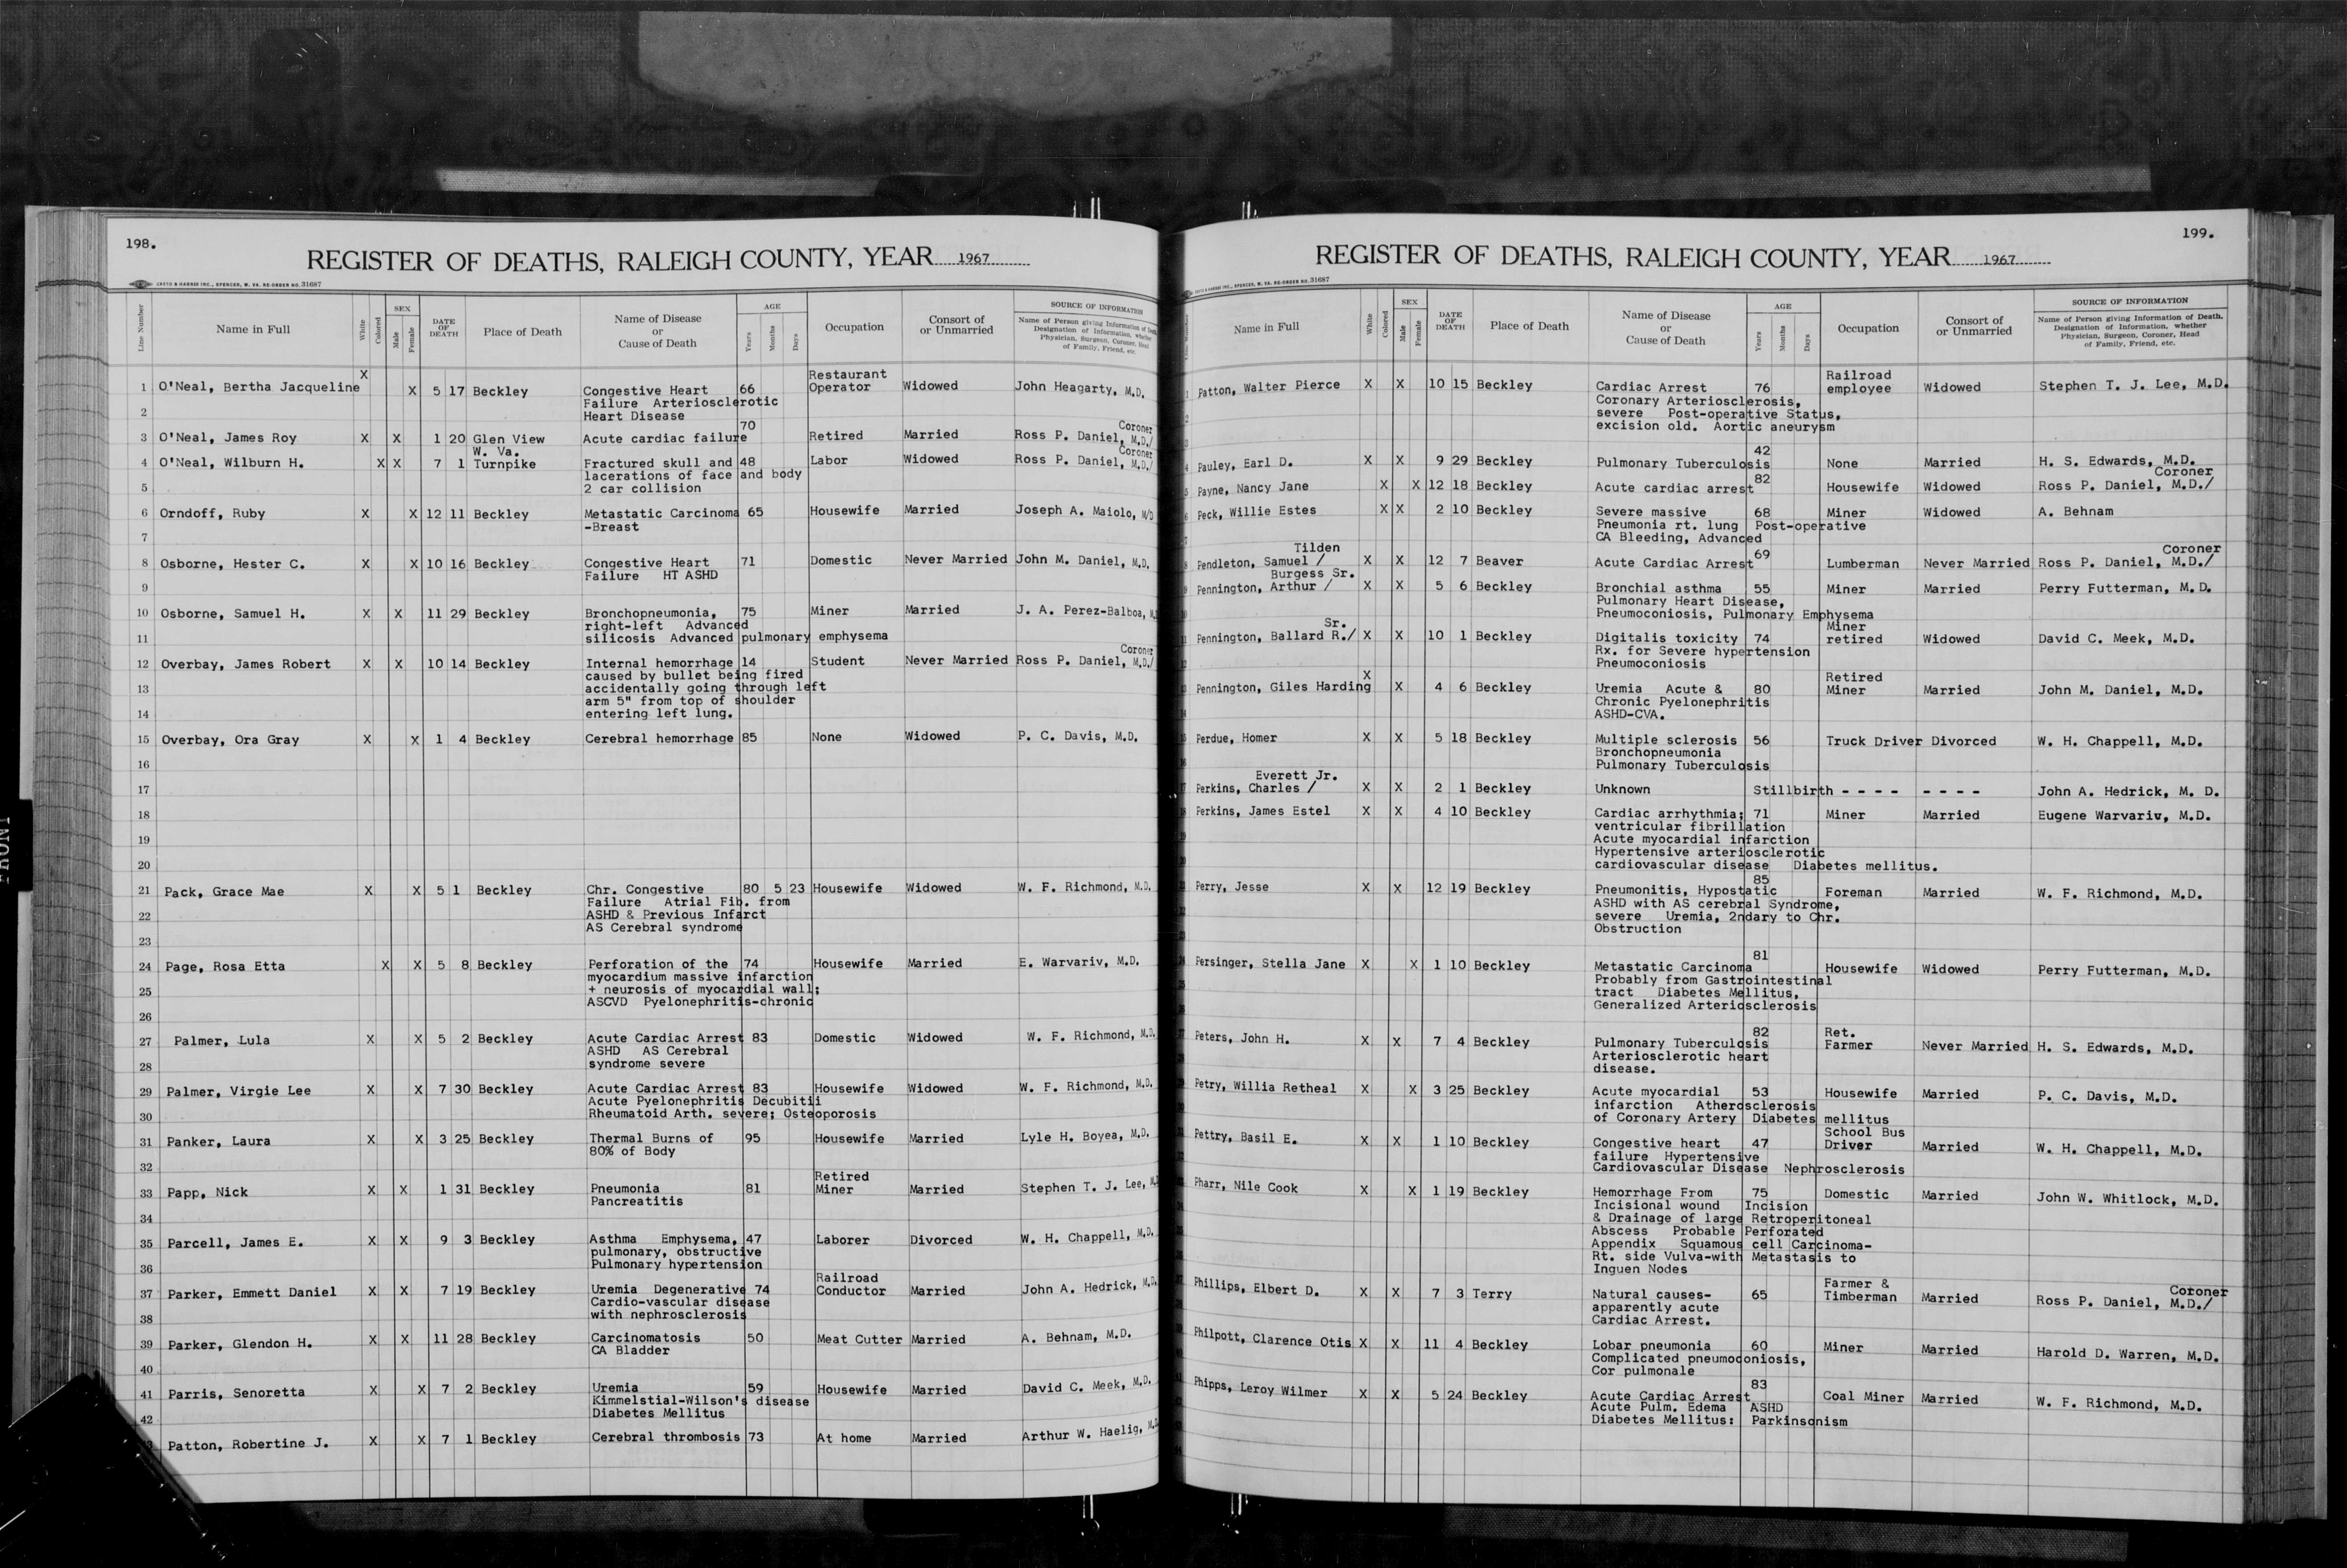 198.
REGISTER OF DEATHS, RALEIGH COUNTY, YEAR 1967
CASTO & HARRIS INC., SPENCER, W. VA. RE-ORDER NO. 31687
Line Number Name in Full White Colored SEX Male Female DATE OF DEATH Place of Death Name of Disease or Cause of Death AGE Years Months Days Occupation Consort of or Unmarried SOURCE OF INFORMATION
Name of Person giving Information of Death, Designation of Information, whether Physician, Surgeon, Coroner, Head of Family, Friend, etc.
1 O'Neal, Bertha Jacqueline X X 5 17 Beckley Congestive Heart 66 Restaurant Operator Widowed John Heagarty, M.D.
Failure Arteriosclerotic
2 Heart Disease
3 O'Neal, James Roy X X 1 20 Glen View Acute cardiac failure 70 Retired Married Ross P. Daniel, M.D./ Coroner
4 O'Neal, Wilburn H. X X 7 1 W. Va. Turnpike Fractured skull and 48 Labor Widowed Ross P. Daniel, M.D./ Coroner
lacerations of face and body
5 2 car collision
6 Orndoff, Ruby X X 12 11 Beckley Metastatic Carcinoma 65 Housewife Married Joseph A. Maiolo, M/D
-Breast
7
8 Osborne, Hester C. X X 10 16 Beckley Congestive Heart 71 Domestic Never Married John M. Daniel, M.D.
Failure HT ASHD
9
10 Osborne, Samuel H. X X 11 29 Beckley Bronchopneumonia, 75 Miner Married J. A. Perez-Balboa, M.
right-left Advanced
11 silicosis Advanced pulmonary emphysema
12 Overbay, James Robert X X 10 14 Beckley Internal hemorrhage 14 Student Never Married Ross P. Daniel, M.D./ Coroner
caused by bullet being fired
13 accidentally going through left
arm 5" from top of shoulder
14 entering left lung.
15 Overbay, Ora Gray X X 1 4 Beckley Cerebral hemorrhage 85 None Widowed P. C. Davis, M.D.
16
17
18
19
20
21 Pack, Grace Mae X X 5 1 Beckley Chr. Congestive 80 5 23 Housewife Widowed W. F. Richmond, M.D.
Failure Atrial Fib. from
22 ASHD & Previous Infarct
AS Cerebral syndrome
23
24 Page, Rosa Etta X X 5 8 Beckley Perforation of the 74 Housewife Married E. Warvariv, M.D.
myocardium massive infarction
25 + neurosis of myocardial wall;
ASCVD Pyelonephritis-chronic
26
27 Palmer, Lula X X 5 2 Beckley Acute Cardiac Arrest 83 Domestic Widowed W. F. Richmond, M.D.
ASHD AS Cerebral
28 syndrome severe
29 Palmer, Virgie Lee X X 7 30 Beckley Acute Cardiac Arrest 83 Housewife Widowed W. F. Richmond, M.D.
Acute Pyelonephritis Decubitii
30 Rheumatoid Arth. severe; Osteoporosis
31 Panker, Laura X X 3 25 Beckley Thermal Burns of 95 Housewife Married Lyle H. Boyea, M.D.
80% of Body
32
33 Papp, Nick X X 1 31 Beckley Pneumonia 81 Retired Miner Married Stephen T. J. Lee, M.D
Pancreatitis
34
35 Parcell, James E. X X 9 3 Beckley Asthma Emphysema, 47 Laborer Divorced W. H. Chappell, M.D.
pulmonary, obstructive
36 Pulmonary hypertension
37 Parker, Emmett Daniel X X 7 19 Beckley Uremia Degenerative 74 Railroad Conductor Married John A. Hedrick, M.D.
Cardio-vascular disease
38 with nephrosclerosis
39 Parker, Glendon H. X X 11 28 Beckley Carcinomatosis 50 Meat Cutter Married A. Behnam, M.D.
CA Bladder
40
41 Parris, Senoretta X X 7 2 Beckley Uremia 59 Housewife Married David C. Meek, M.D.
Kimmelstial-Wilson's disease
42 Diabetes Mellitus
Patton, Robertine J. X X 7 1 Beckley Cerebral thrombosis 73 At home Married Arthur W. Haelig, M.D
199.
REGISTER OF DEATHS, RALEIGH COUNTY, YEAR 1967
CASTO & HARRIS INC., SPENCER, W. VA. RE-ORDER NO. 31687
Line Number Name in Full White Colored SEX Male Female DATE OF DEATH Place of Death Name of Disease or Cause of Death AGE Years Months Days Occupation Consort of or Unmarried SOURCE OF INFORMATION
Name of Person giving Information of Death, Designation of Information, whether Physician, Surgeon, Coroner, Head of Family, Friend, etc.
1 Patton, Walter Pierce X X 10 15 Beckley Cardiac Arrest 76 Railroad employee Widowed Stephen T. J. Lee, M.D.
Coronary Arteriosclerosis,
severe Post-operative Status,
excision old. Aortic aneurysm
4 Pauley, Earl D. X X 9 29 Beckley Pulmonary Tuberculosis 42 None Married H. S. Edwards, M.D.
5 Payne, Nancy Jane X X 12 18 Beckley Acute cardiac arrest 82 Housewife Widowed Ross P. Daniel, M.D./ Coroner
6 Peck, Willie Estes X X 2 10 Beckley Severe massive 68 Miner Widowed A. Behnam
Pneumonia rt. lung Post-operative
CA Bleeding, Advanced
8 Pendleton, Samuel / Tilden X X 12 7 Beaver Acute Cardiac Arrest 69 Lumberman Never Married Ross P. Daniel, M.D./ Coroner
9 Pennington, Arthur / Burgess Sr. X X 5 6 Beckley Bronchial asthma 55 Miner Married Perry Futterman, M.D.
Pulmonary Heart Disease,
Pneumoconiosis, Pulmonary Emphysema
11 Pennington, Ballard R./ Sr. X X 10 1 Beckley Digitalis toxicity 74 Miner retired Widowed David C. Meek, M.D.
Rx. for Severe hypertension
Pneumoconiosis
13 Pennington, Giles Harding X X 4 6 Beckley Uremia Acute & 80 Retired Miner Married John M. Daniel, M.D.
Chronic Pyelonephritis
ASHD-CVA.
15 Perdue, Homer X X 5 18 Beckley Multiple sclerosis 56 Truck Driver Divorced W. H. Chappell, M.D.
Bronchopneumonia
Pulmonary Tuberculosis
17 Perkins, Charles / Everett Jr. X X 2 1 Beckley Unknown Stillbirth - - - - - - - - John A. Hedrick, M. D.
18 Perkins, James Estel X X 4 10 Beckley Cardiac arrhythmia; 71 Miner Married Eugene Warvariv, M.D.
ventricular fibrillation
Acute myocardial infarction
Hypertensive arteriosclerotic
cardiovascular disease Diabetes mellitus.
21 Perry, Jesse X X 12 19 Beckley Pneumonitis, Hypostatic 85 Foreman Married W. F. Richmond, M.D.
ASHD with AS cerebral Syndrome,
severe Uremia, 2ndary to Chr.
Obstruction
24 Persinger, Stella Jane X X 1 10 Beckley Metastatic Carcinoma 81 Housewife Widowed Perry Futterman, M.D.
Probably from Gastrointestinal
tract Diabetes Mellitus,
Generalized Arteriosclerosis
27 Peters, John H. X X 7 4 Beckley Pulmonary Tuberculosis 82 Ret. Farmer Never Married H. S. Edwards, M.D.
Arteriosclerotic heart
disease.
29 Petry, Willia Retheal X X 3 25 Beckley Acute myocardial 53 Housewife Married P. C. Davis, M.D.
infarction Atherosclerosis
of Coronary Artery Diabetes mellitus
31 Pettry, Basil E. X X 1 10 Beckley Congestive heart 47 School Bus Driver Married W. H. Chappell, M.D.
failure Hypertensive
Cardiovascular Disease Nephrosclerosis
33 Pharr, Nile Cook X X 1 19 Beckley Hemorrhage From 75 Domestic Married John W. Whitlock, M.D.
Incisional wound Incision
& Drainage of large Retroperitoneal
Abscess Probable Perforated
Appendix Squamous cell Carcinoma-
Rt. side Vulva-with Metastasis to
Inguen Nodes
37 Phillips, Elbert D. X X 7 3 Terry Natural causes- 65 Farmer & Timberman Married Ross P. Daniel, M.D./ Coroner
apparently acute
Cardiac Arrest.
Philpott, Clarence Otis X X 11 4 Beckley Lobar pneumonia 60 Miner Married Harold D. Warren, M.D.
Complicated pneumoconiosis,
Cor pulmonale
Phipps, Leroy Wilmer X X 5 24 Beckley Acute Cardiac Arrest 83 Coal Miner Married W. F. Richmond, M.D.
Acute Pulm. Edema ASHD
Diabetes Mellitus: Parkinsonism
FRONT